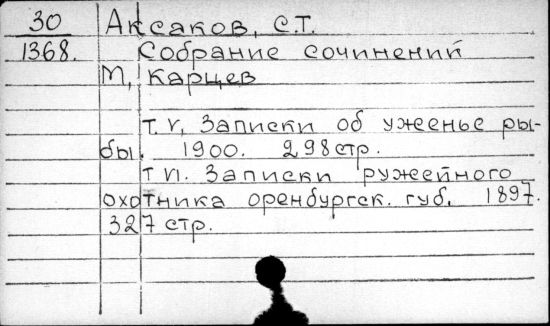 30 Аксаков, С.Т.
1368. Собрание сочинений
М, Карцев
т. V, Записки об уженье ры-
бы. 1900. 298 стр.
т VI. Записки ружейного
охотника оренбургск. губ. 1897.
327 стр.